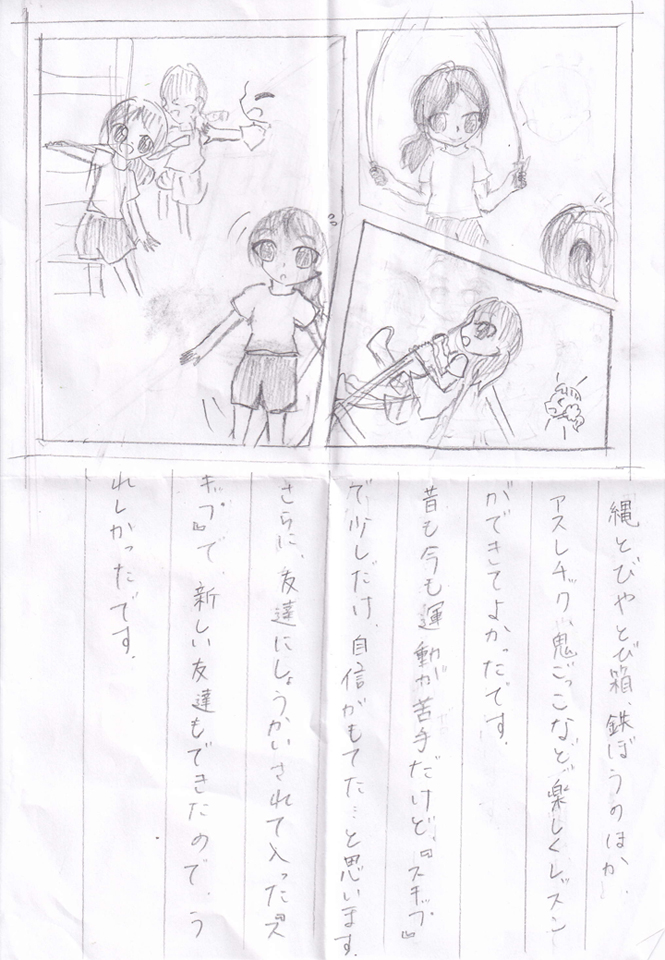 縄とびやとび箱、鉄ぼうのほか、
アスレチック、鬼ごっこなど楽しくレッスン
ができてよかったです。
昔も今も運動が苦手だけど、『スキップ』
で少しだけ、自信がもてた…と思います。
さらに、友達にしょうかいされて入った『ス
キップ』で、新しい友達もできたので、う
れしかったです。